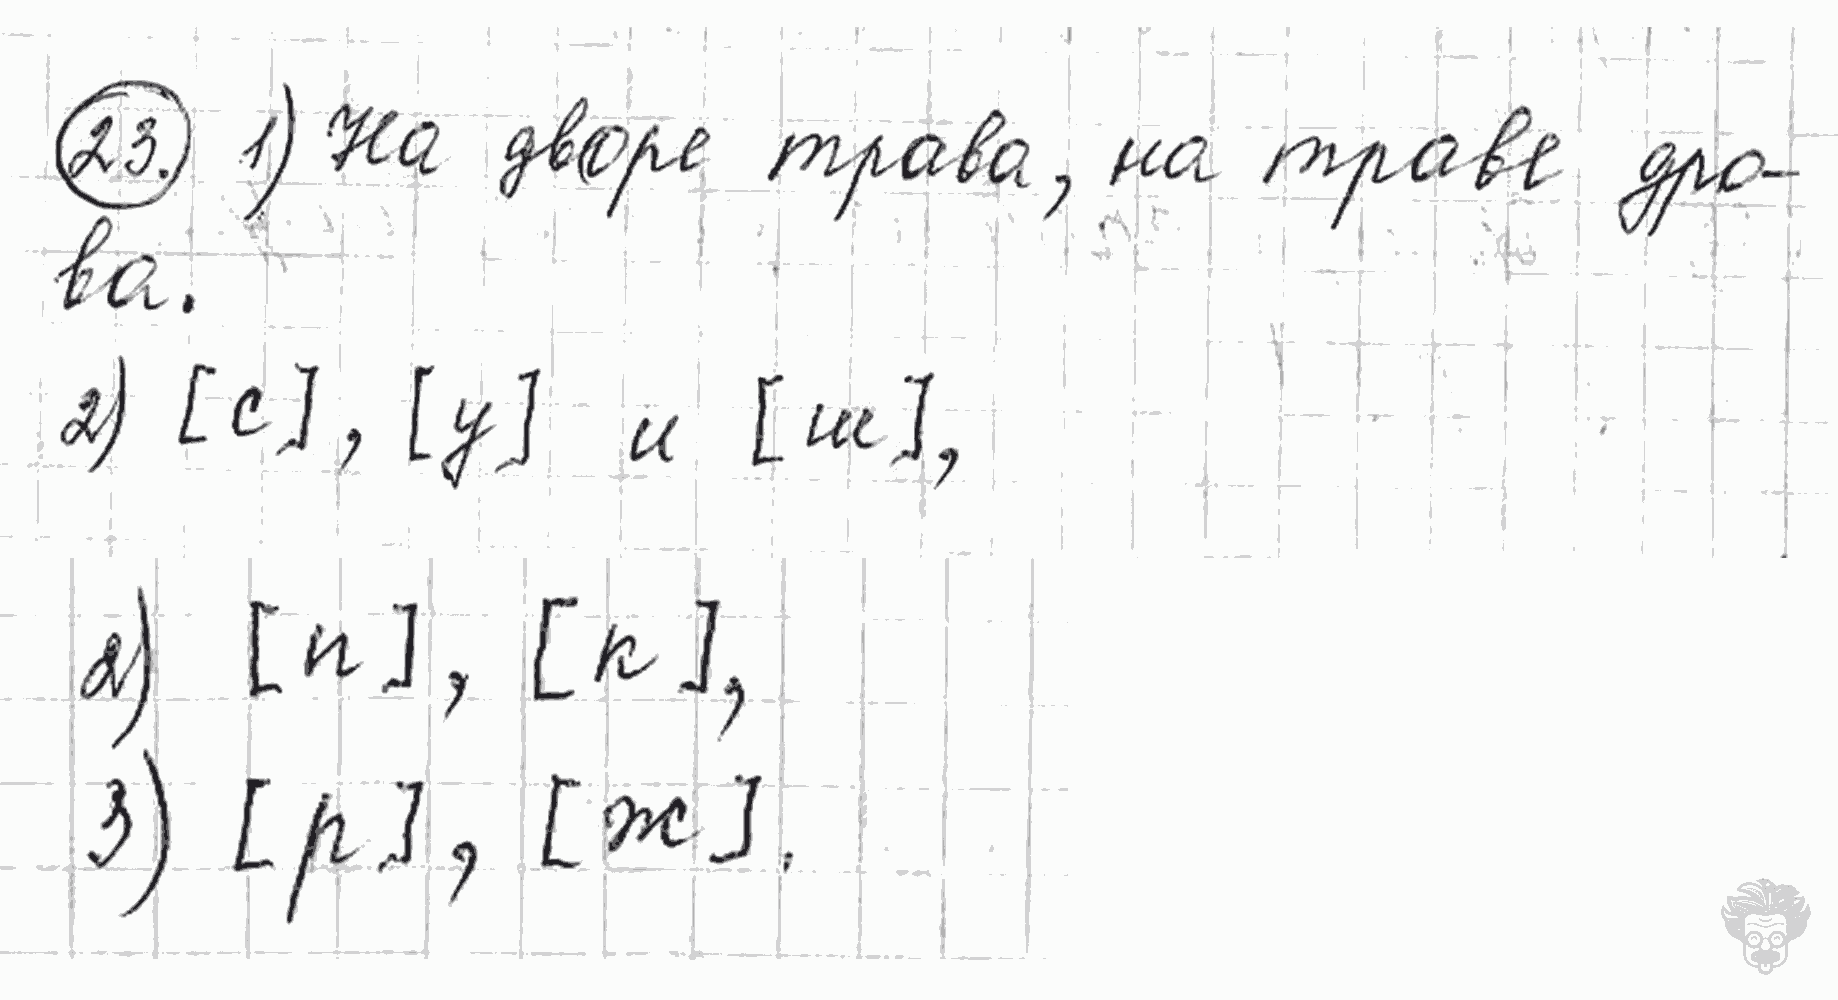 23. 1) На дворе трава, на траве дро-
ва.
2) [с], [у] и [ш],
2) [п], [к],
3) [р], [ж].